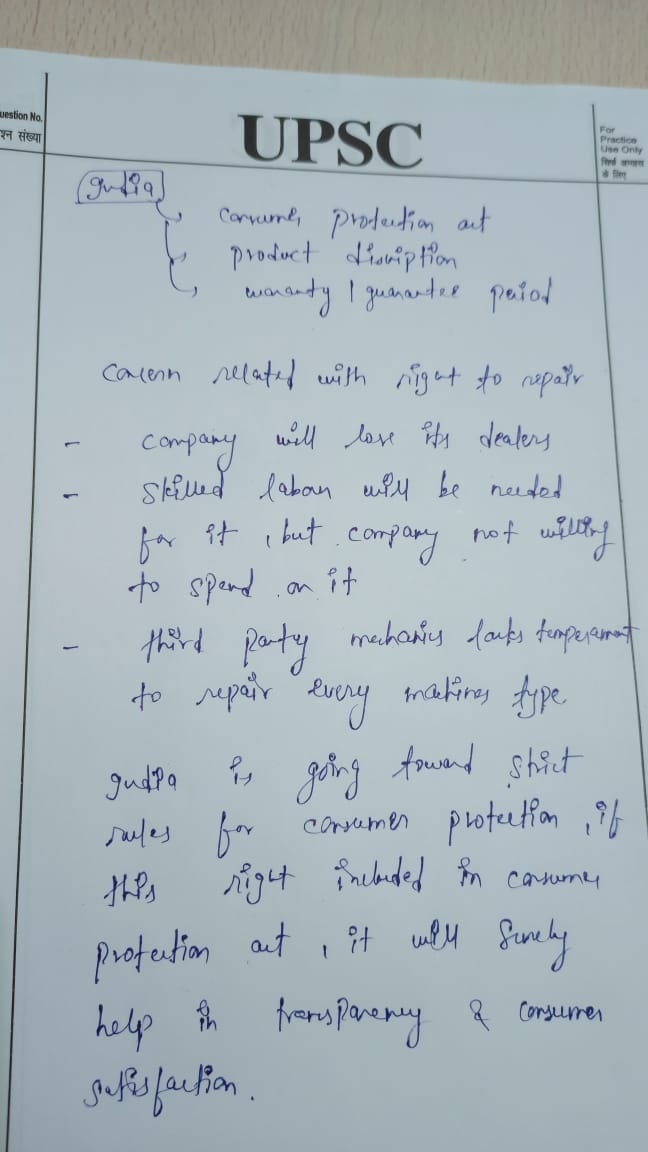 uestion No.
श्न संख्या
UPSC
For
Practice
Use Only
सिर्फ अभ्यास
के लिए
India
consumer protection act
product discription
warranty / guarantee period
Concern related with right to repair
- company will lose its dealers
- skilled labour will be needed
for it, but company not willing
to spend on it
- third party mechanics lacks temperament
to repair every machines type
India is going toward strict
rules for consumer protection, if
this right included in consumer
protection act, it will surely
help in transparency & consumer
satisfaction.